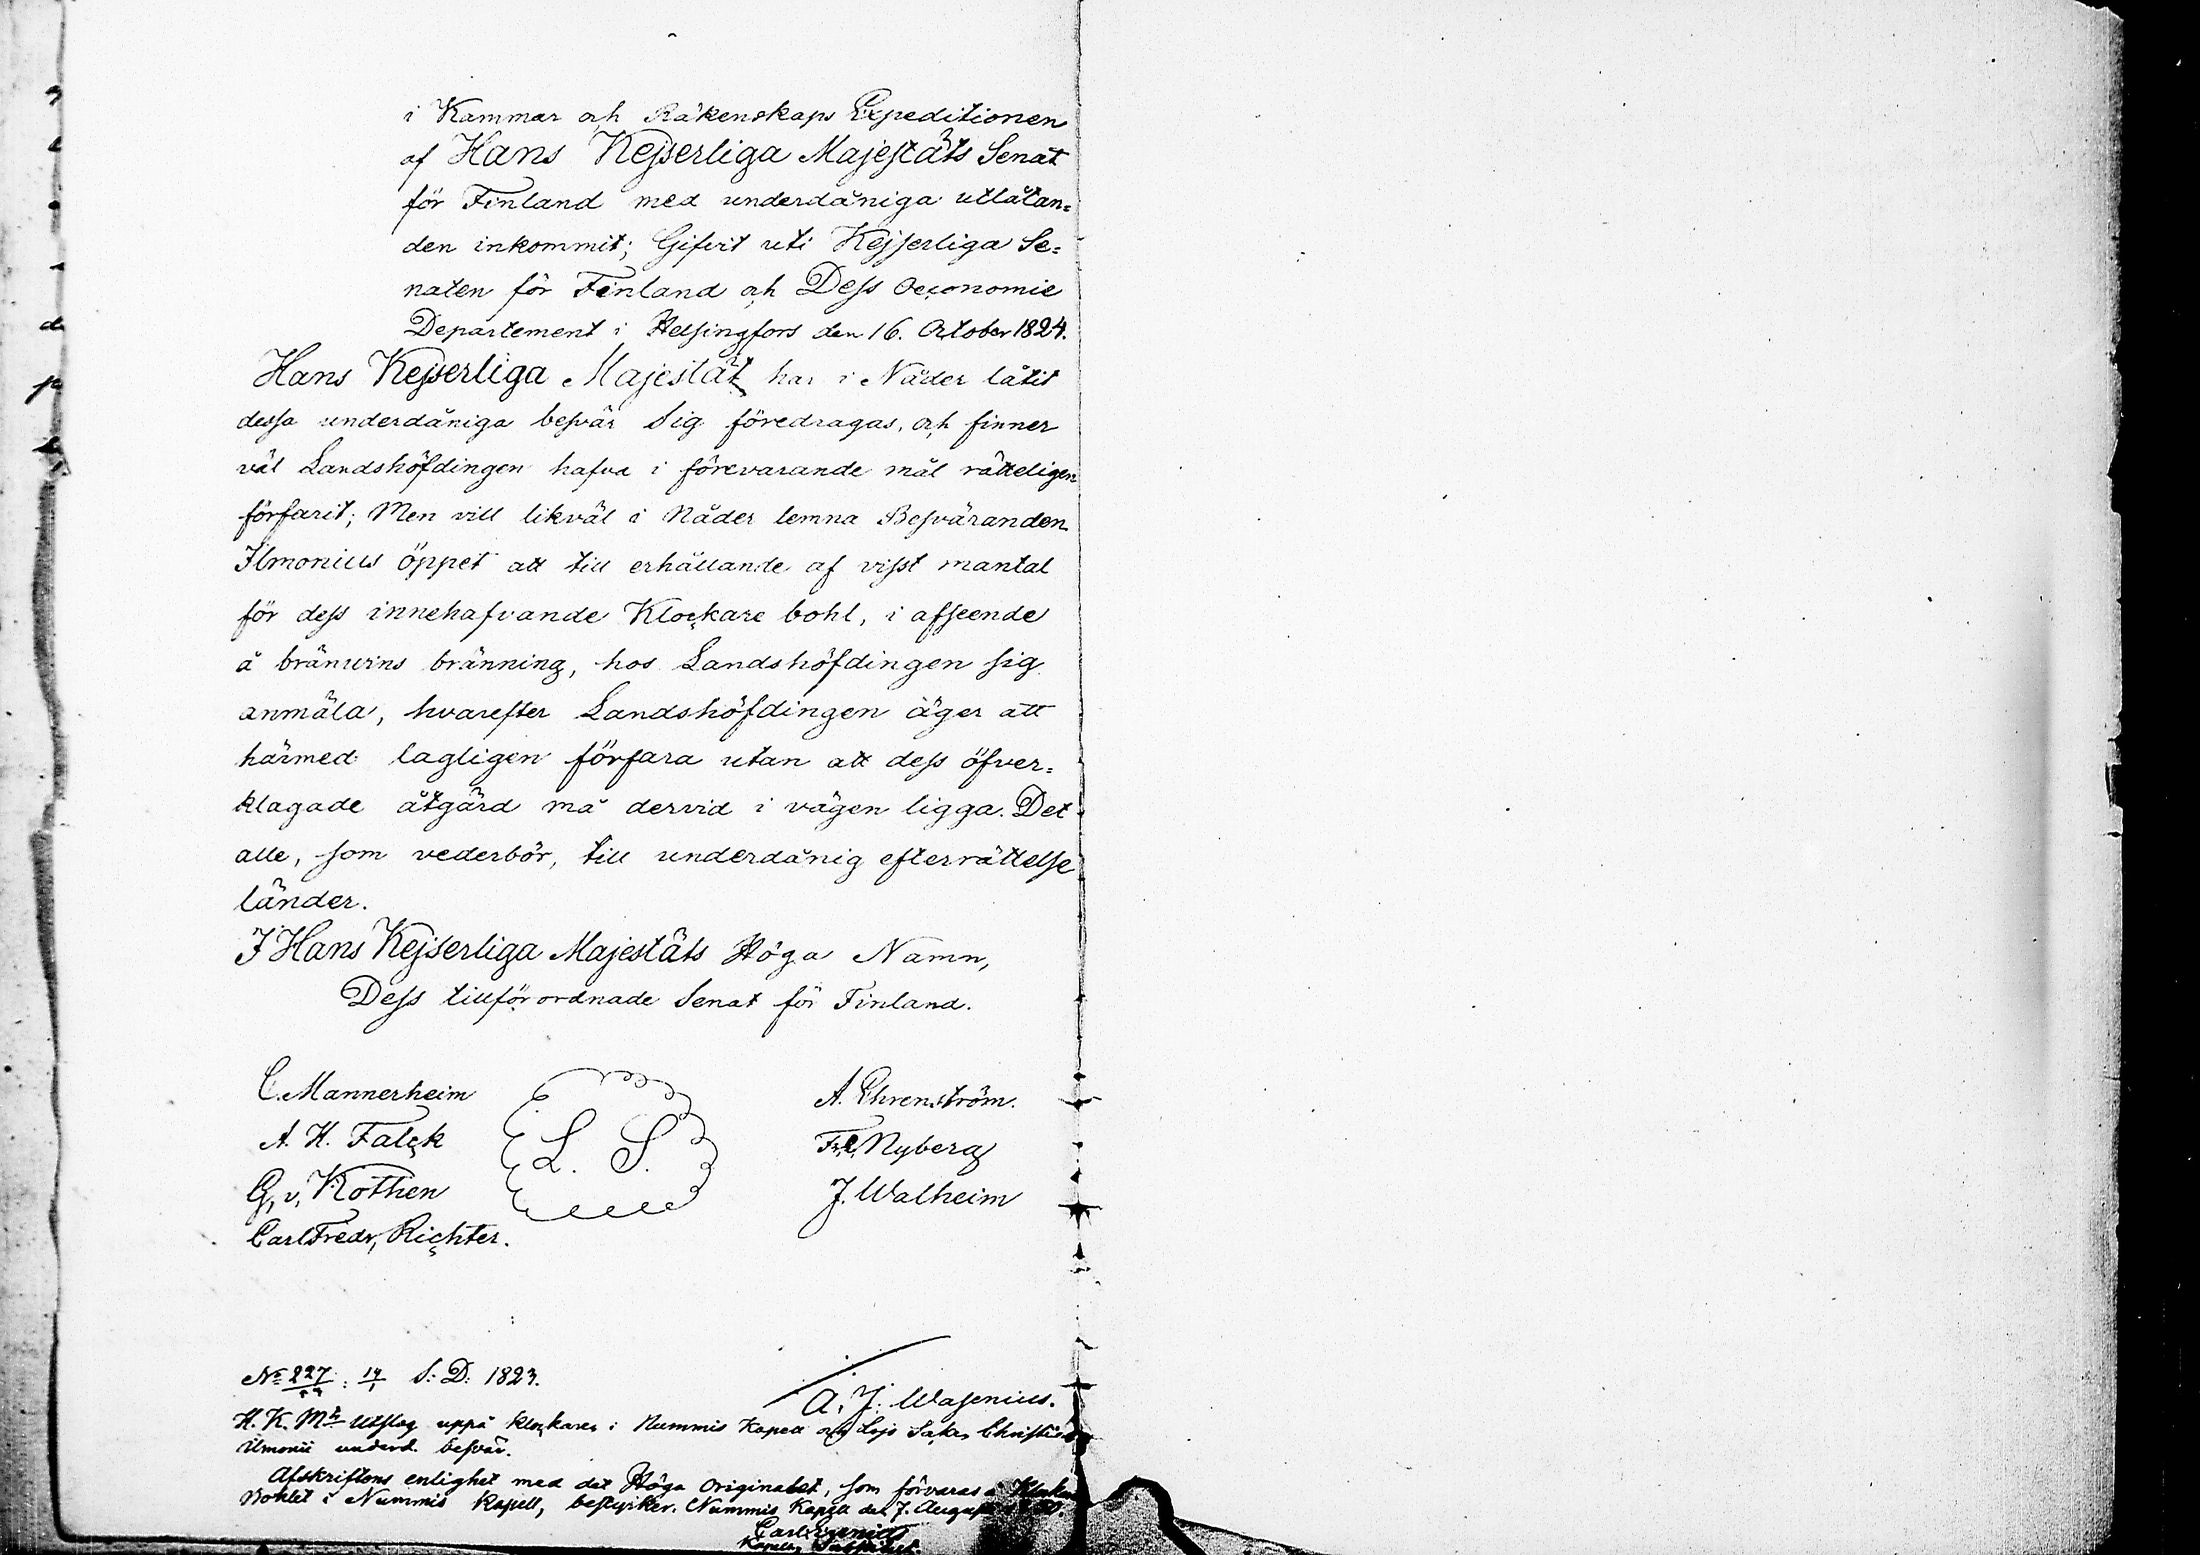 i Kammar och Räkenskaps Expeditionen
af Hans Kejserliga Majestäts Senat
för Finland med underdåniga utlåtan=
den inkommit; Gifvit uti Kejserliga Se=
naten för Finland och Dess Oeconomie
Departement i Helsingfors den 16. October 1824.
Hans Kejserliga Majestät har i Nåder låtit
dessa underdåniga besvär Sig föredragas, och finner
väl Landshöfdingen hafva i förevarande mål rätteligen
förfarit; Men vill likväl i Nåder lemna Besväranden
Ilmonius öppet att till erhållande af visst mantal
för dess innehafvande Klockare bohl, i afseende
å bränvins bränning, hos Landshöfdingen sig
anmäla, hvarefter Landshöfdingen äger att
härmed lagligen förfara utan att dess öfver=
klagade åtgärd må dervid i vägen ligga. Det
alle, som vederbör, till underdånig efterrättelse
länder.
I Hans Kejserliga Majestäts Höga Namn,
Dess tillförordnade Senat för Finland.
C. Mannerheim
A. H. Falck
G. v. Kothen
Carl Fredr, Richter.
L. S.
A. Ehrenström.
Nyberg
J. Walheim
No 227 S: D: 1823.
A. J. Wasenius.
H. K. Mts Utslag uppå klockaren i Nummis Kapell och Lojo
Ilmonii underd. besvär.
Afskriftens enlighet med det Höga Originalet, som förvaras i
Bohlet i Nummis Kapell, bestyrker. Nummis Kapell den 7. August
Carl